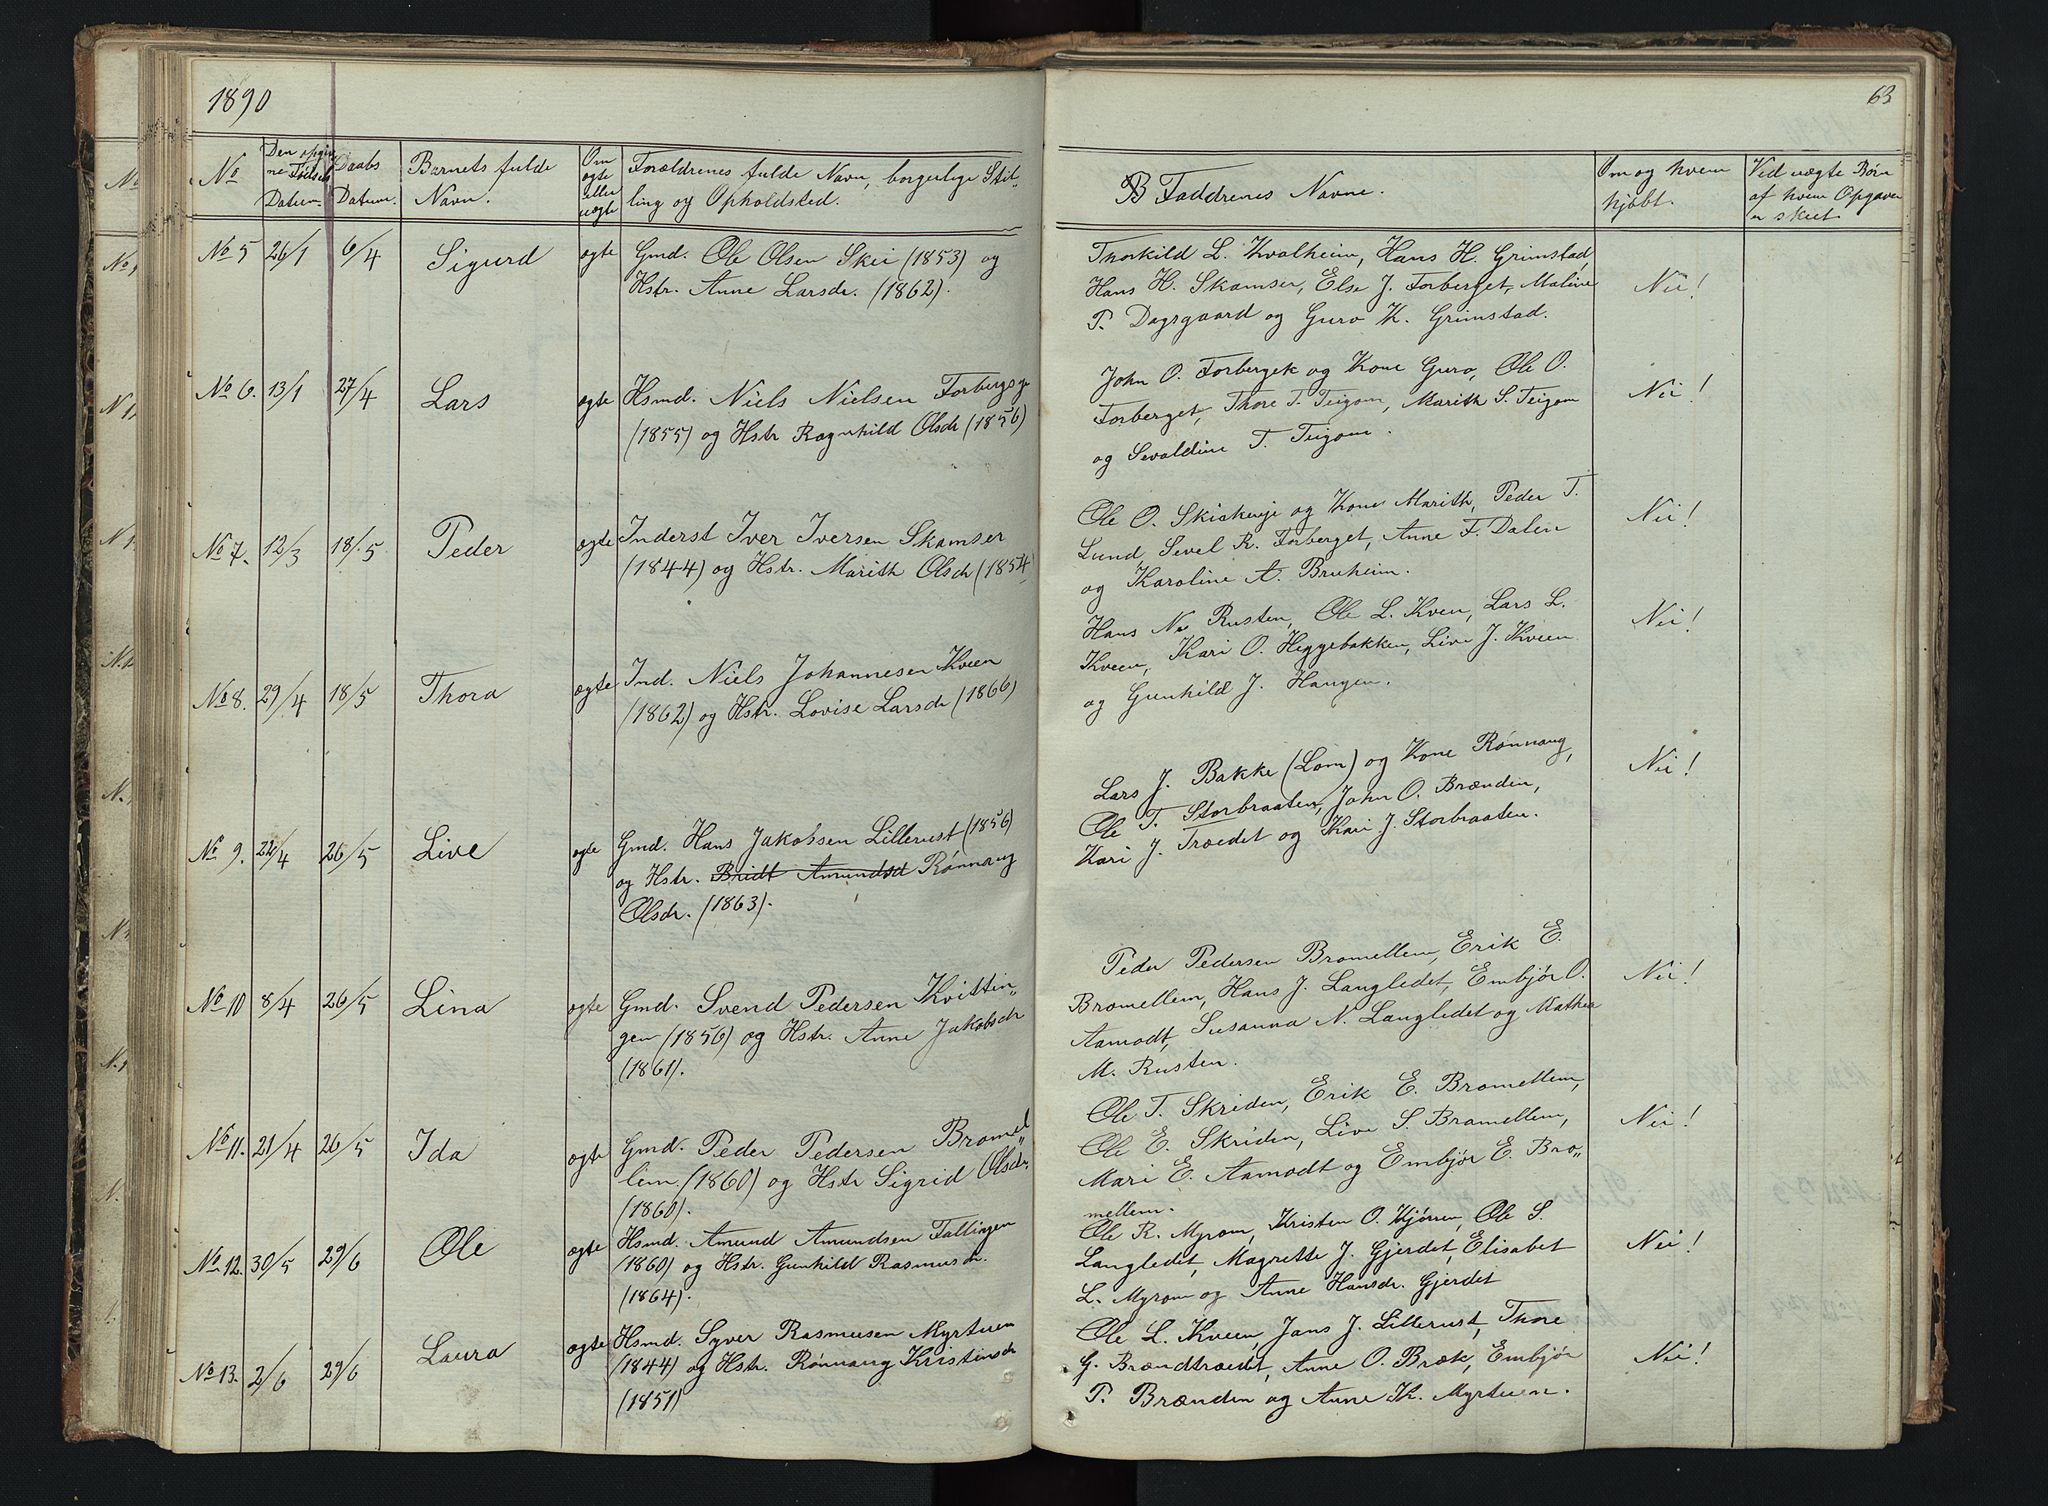 1890
63
No
Den opgiv
ne Födsels
Datum.
Daabs
Datum.
Barnets fulde
Navn.
Om
ægte
eller
uægte
Forældrenes fulde Navn, borgerlige Stil-
ling og Opholdsted.
Faddrenes Navne.
Om og hvem
hjöbt.
Ved uægte Börn
af hvem Opgaven
er skeet.
No 5 26/1 6/4 Sigurd ægte
Gmd. Ole Olsen Skei (1853) og
Hstr. Anne Larsdr. (1862).
Thorkild L. Kvalheim, Hans H. Grimstad,
Hans H. Skamser, Else J. Forberget, Maline
P. Dagsgaard og Guro K. Grimstad.
Nei!
No 6. 13/1 27/4 Lars ægte
Hsmd. Niels Nielsen Forbergsge
(1855) og Hstr Ragnhild Olsdr (1856)
John O. Forbergek og Kone Guro, Ole O.
Forberget, Thore T. Teigom, Marith S. Teigom
og Sevaldine T. Teigom.
Nei!
No 7. 12/3 18/5 Peder ægte
Inderst Iver Iversen Skamser
(1844) og Hstr. Marith Olsdr (1854)
Ole O. Skiakeije og Kone Marith, Peder T.
Lund, Sevel R. Forberget, Anne F. Dalen
og Karoline A. Bruheim.
Nei!
No 8. 29/4 18/5 Thora ægte
Ind. Niels Johannesen Kveen
(1862) og Hstr. Lovise Larsdr (1866)
Hans N. Rusten, Ole L. Kven, Lars L.
Kveen, Kari O. Heggebakken, Live J. Kveen
og Gunhild J. Haugen.
Nei!
No 9. 22/4 26/5 Live ægte
Gmd. Hans Jakobsen Lillerust (1856)
og Hstr. Bridt Amundsd Rönnaug
Olsdr. (1863).
Lars J. Bakke (Lom) og Kone Rönnaug,
Ole T. Storbraaten, John O. Brænden,
Kari J. Træedet og Kari J. Storbraaten.
Nei!
No 10 8/4 26/5 Lina ægte
Gmd. Svend Pedersen Kvittin„
gen (1856) og Hstr. Anne Jakobsdr
(1861).
Peder Pedersen Bromellem, Erik E.
Bromellem, Hans J. Langledet, Embjör O.
Aamodt, Susanna N. Langledet og Mathea
M. Rusten.
Nei!
No 11. 21/4 26/5 Ida ægte
Gmd. Peder Pedersen Bromel„
lem. (1860) og Hstr Sigrid Olsdr.
(1860).
Ole T. Skriden, Erik E. Bromellem,
Ole E. Skriden, Live S. Bramellem,
Mari E. Aamodt og Embjör E. Bro„
mellem.
Nei!
No 12. 30/5 29/6 Ole ægte
Hsmd. Amund Amundsen Faltingen
(1860) og Hstr. Gunhild Rasmusdr.
(1864).
Ole R. Myrom, Kristen O. Kjörren, Ole S.
Langledet, Magrette J. Gjerdet, Elisabet
L. Myrom og Anne Hansdr. Gjerdet
Nei!
No 13. 2/6 29/6 Laura ægte
Hsmd. Syver Rasmusen Myrtuen
(1844) og Hstr. Rönnaug Kristinsdr
(1851)
Ole L. Kveen, Jans J. Lillerust, Thore
G. Brændtrædet, Anne O. Bræk, Embjör
P. Brænden og Anne K. Myrtuen.
Nei!